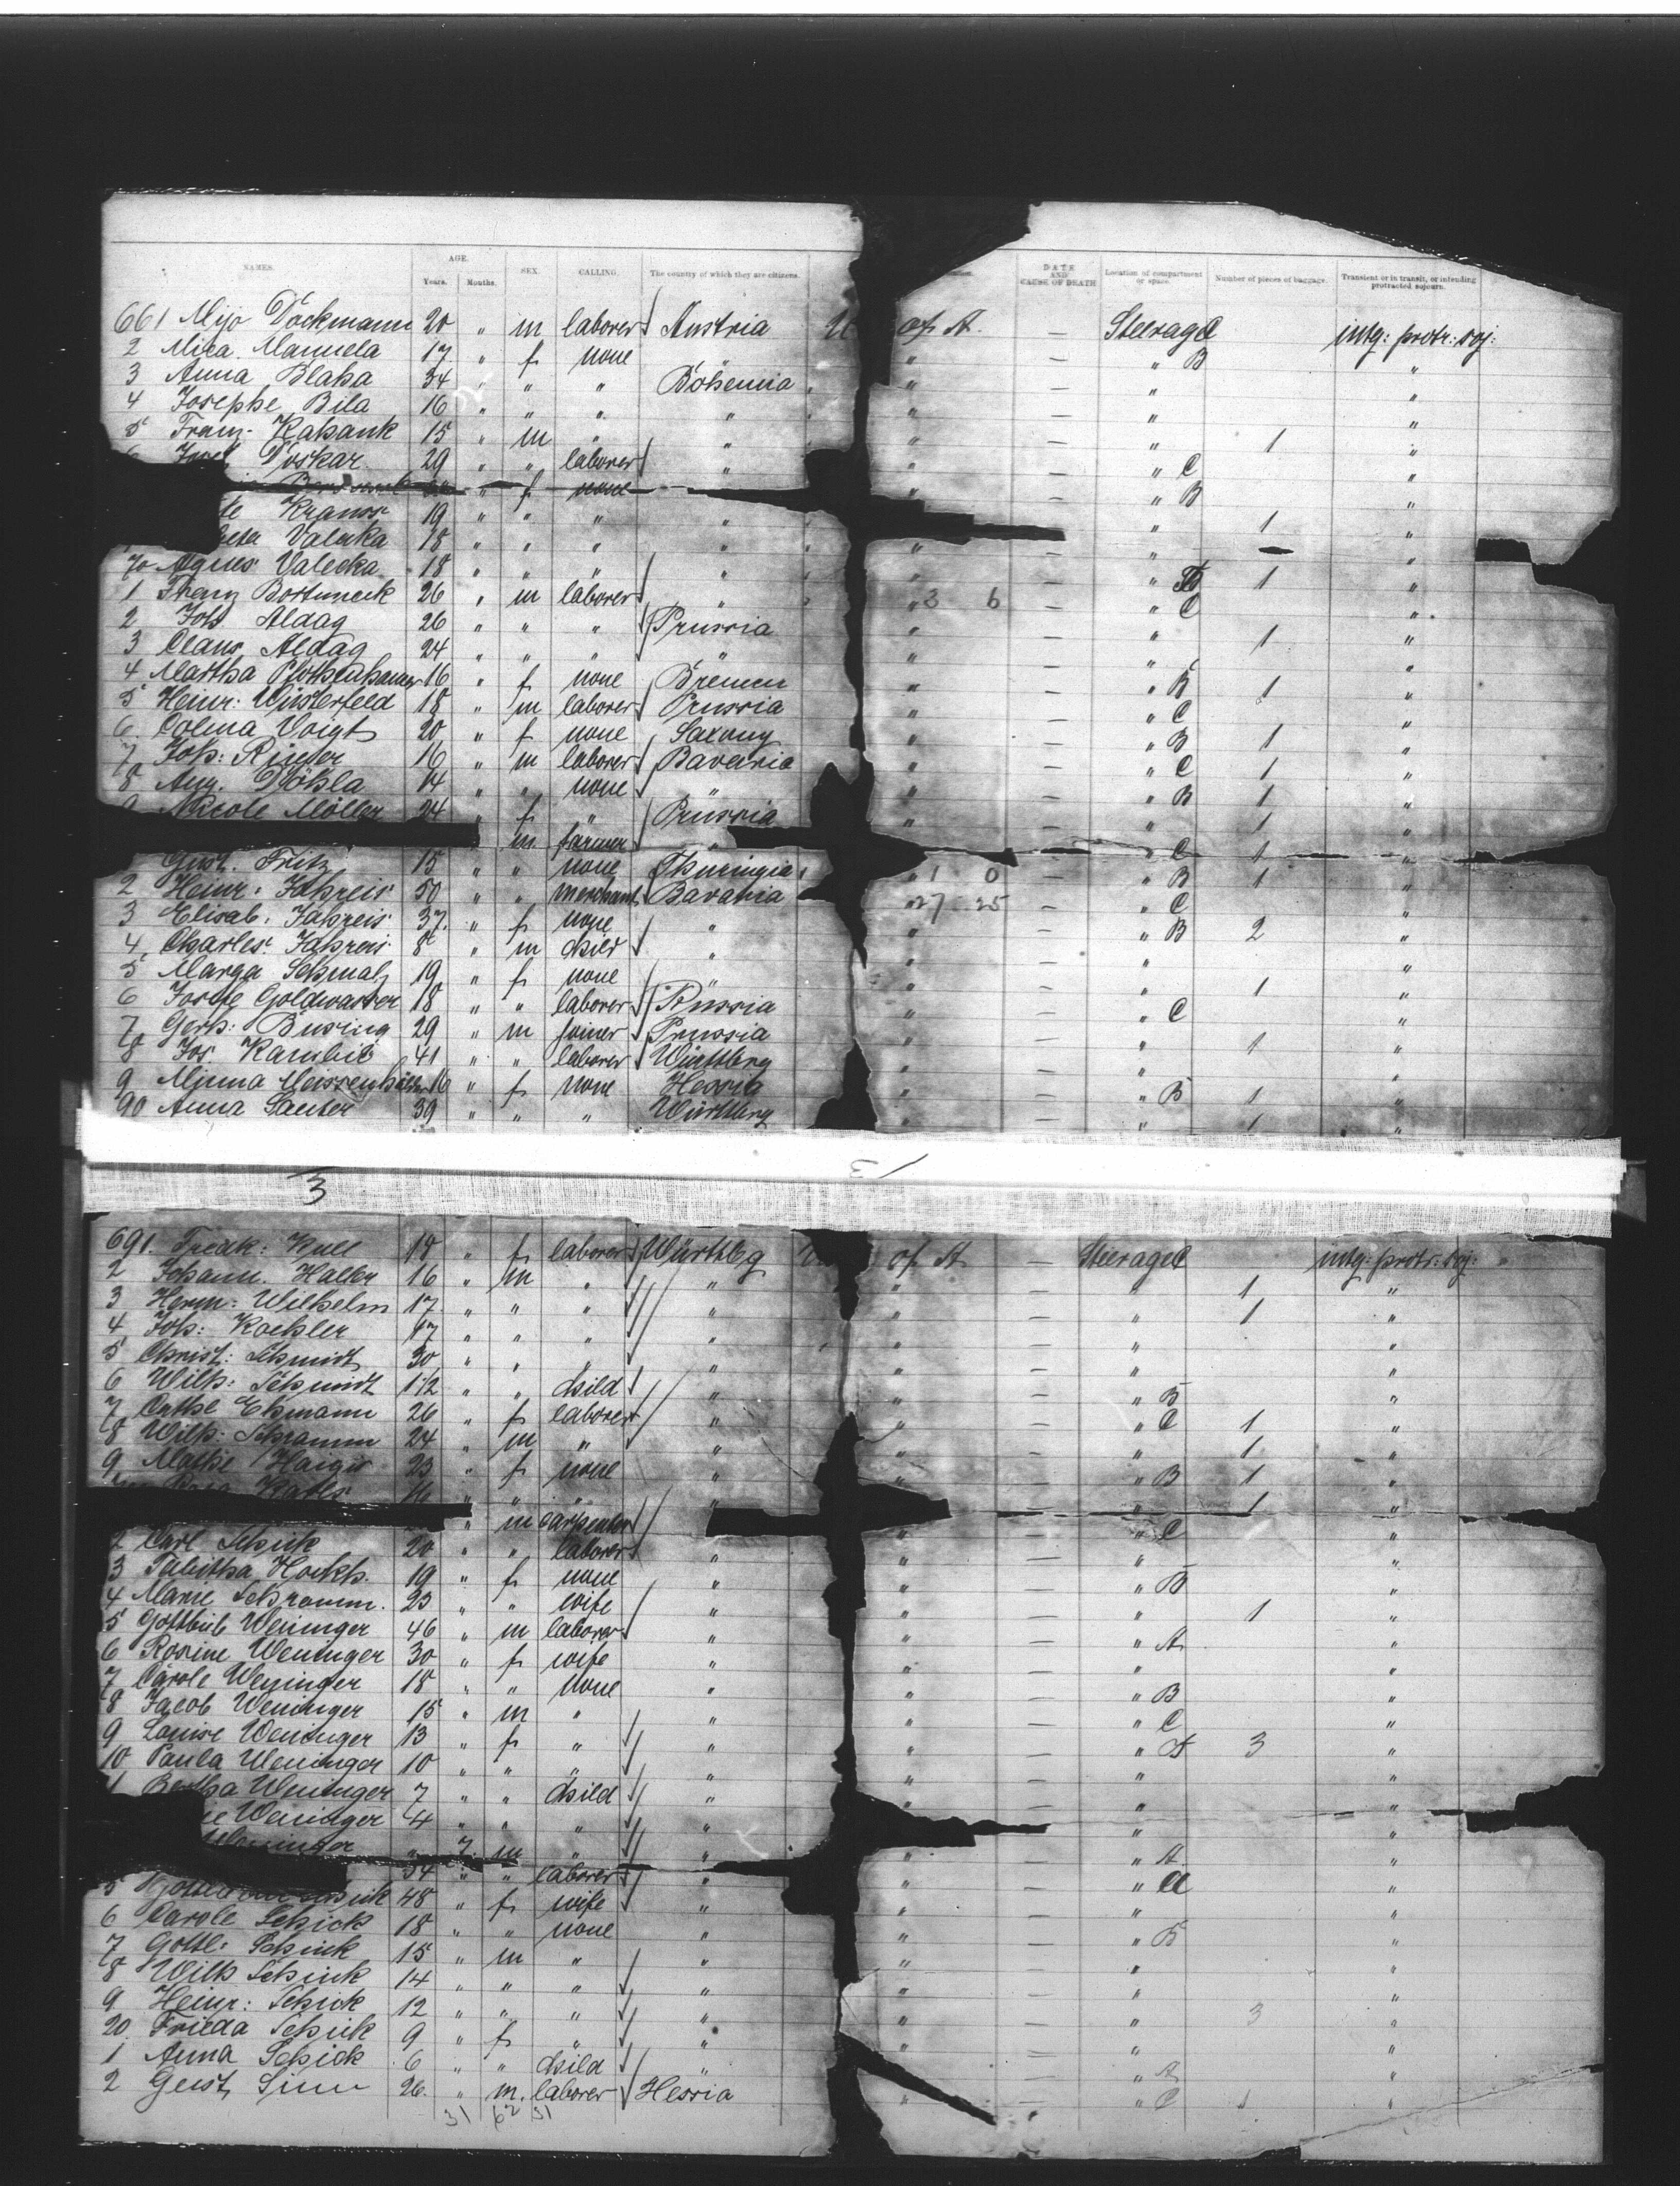 NAMES. AGE. Years. Months. SEX. CALLING. The country of which they are citizens. DATE AND CAUSE OF DEATH Location of compartment or space. Number of pieces of baggage. Transient or in transit, or intending protracted sojourn.
661 Mijo Dockmann 20 " m laborer Austria U of A. — Steerage C intg: protr: soj:
2 Manuela 17 " f none " — " B "
3 Anna Blaha 34 " " " Bohemia " — " "
4 Josephe Bila 16 " " " " " — " "
5 Franz Kabank 15 " m " " " — " 1 "
Doskar 29 " " laborer " " — " C "
" f none " — " B "
Kranos 19 " " " " — " 1 "
Valecka 18 " " " " " — " — "
70 Agnes Valecka 18 " " " " " — " B 1 "
1 Franz 26 " m laborer " " 3 6 — " C "
2 Joh Aldag 26 " " " Prussia " — " 1 "
3 Claus Aldag 24 " " " " " — " "
4 Martha 16 " f none Bremen " — " B 1 "
5 Heinr: Wüsterfeld 18 " m laborer Prussia " — " C "
6. Voigt 20 " f none Saxony " — " B 1 "
7 Joh: Ringer 16 " m laborer Bavaria " — " C 1 "
8 Aug. Döhla 14 " " none " " — " B 1 "
Möller 24 " f " Prussia " — " 1 "
m farmer " — " C 1 "
Gust. Fritz 15 " " none Thuringia " 1 0 — " B 1 "
2 Heinr: Jahreis 50 " " merchant Bavaria " 27 25 — " C "
3 Elisab. Jahreis 37. " f none " " — " B 2 "
4 Charles Jahreis 8 " m child " " — " "
5 Marga Schmalz 19 " f none " " — " 1 "
6 Goldwasser 18 " " laborer Russia " — " C "
7 Gerh: Büsing 29 " m joiner Prussia " — " 1 "
8 Jos. 41 " " laborer Württbrg " — " "
9 Minna 16 " f none Hessia " — " B 1 "
90 Anna Sauter 39 " " " Württbrg — " 1 "
3
691. Fredk: Kull 18 " f laborer Württbg of A — Steerage C intg: protr: soj:
2 Johann. Haller 16 " m " " " — " 1 "
3 Herm: Wilhelm 17 " " " " " — " 1 "
4 Joh: Koehler 17 " " " " " — " "
5 Christ: Schmidt 30 " " " " " — " "
6 Wilh: Schmidt 1/12 " " child " " — " B "
7 Cathe Ehmann 26 " f laborer " " — " C 1 "
8 Wilh: Schramm 24 " m " " " — " 1 "
9 23 " f none " " — " B 1 "
16 " " " " — " 1 "
" m carpenter " — " C "
2 Carl Schick 20 " " laborer " " — " "
3 Tabitha Hoekh. 19 " f none " " — " B "
4 Marie Schramm. 23 " " wife " " — " 1 "
5 Gottlieb Weninger 46 " m laborer " " — " A "
6 Rosine Weninger 30 " f wife " " — " "
7 Carole Weninger 18 " " none " " — " B "
8 Jacob Weninger 15 " m " " " — " C "
9 Louise Weninger 13 " f " " " — " A 3 "
10 Paula Weninger 10 " " " " " — " "
1 Bertha Weninger 7 " " child " " — " "
Weninger 4 " " " " — " "
Weninger " 7 m " " " — " A "
34 " " laborer " " — " "
5 Schick 48 " f wife " " — " "
6 Carole Schick 18 " " none " " — " B "
7 Gottl: Schick 15 " m " " " — " "
8 Wilh Schick 14 " " " " " — " "
9 Heinr: Schick 12 " " " " " — " 3 "
20. Frieda Schick 9 " f " " " — " "
1 Anna Schick 6 " " child " " — " A "
2 Gust. 26. " m. laborer Hessia " — " C 1 "
31 62 31